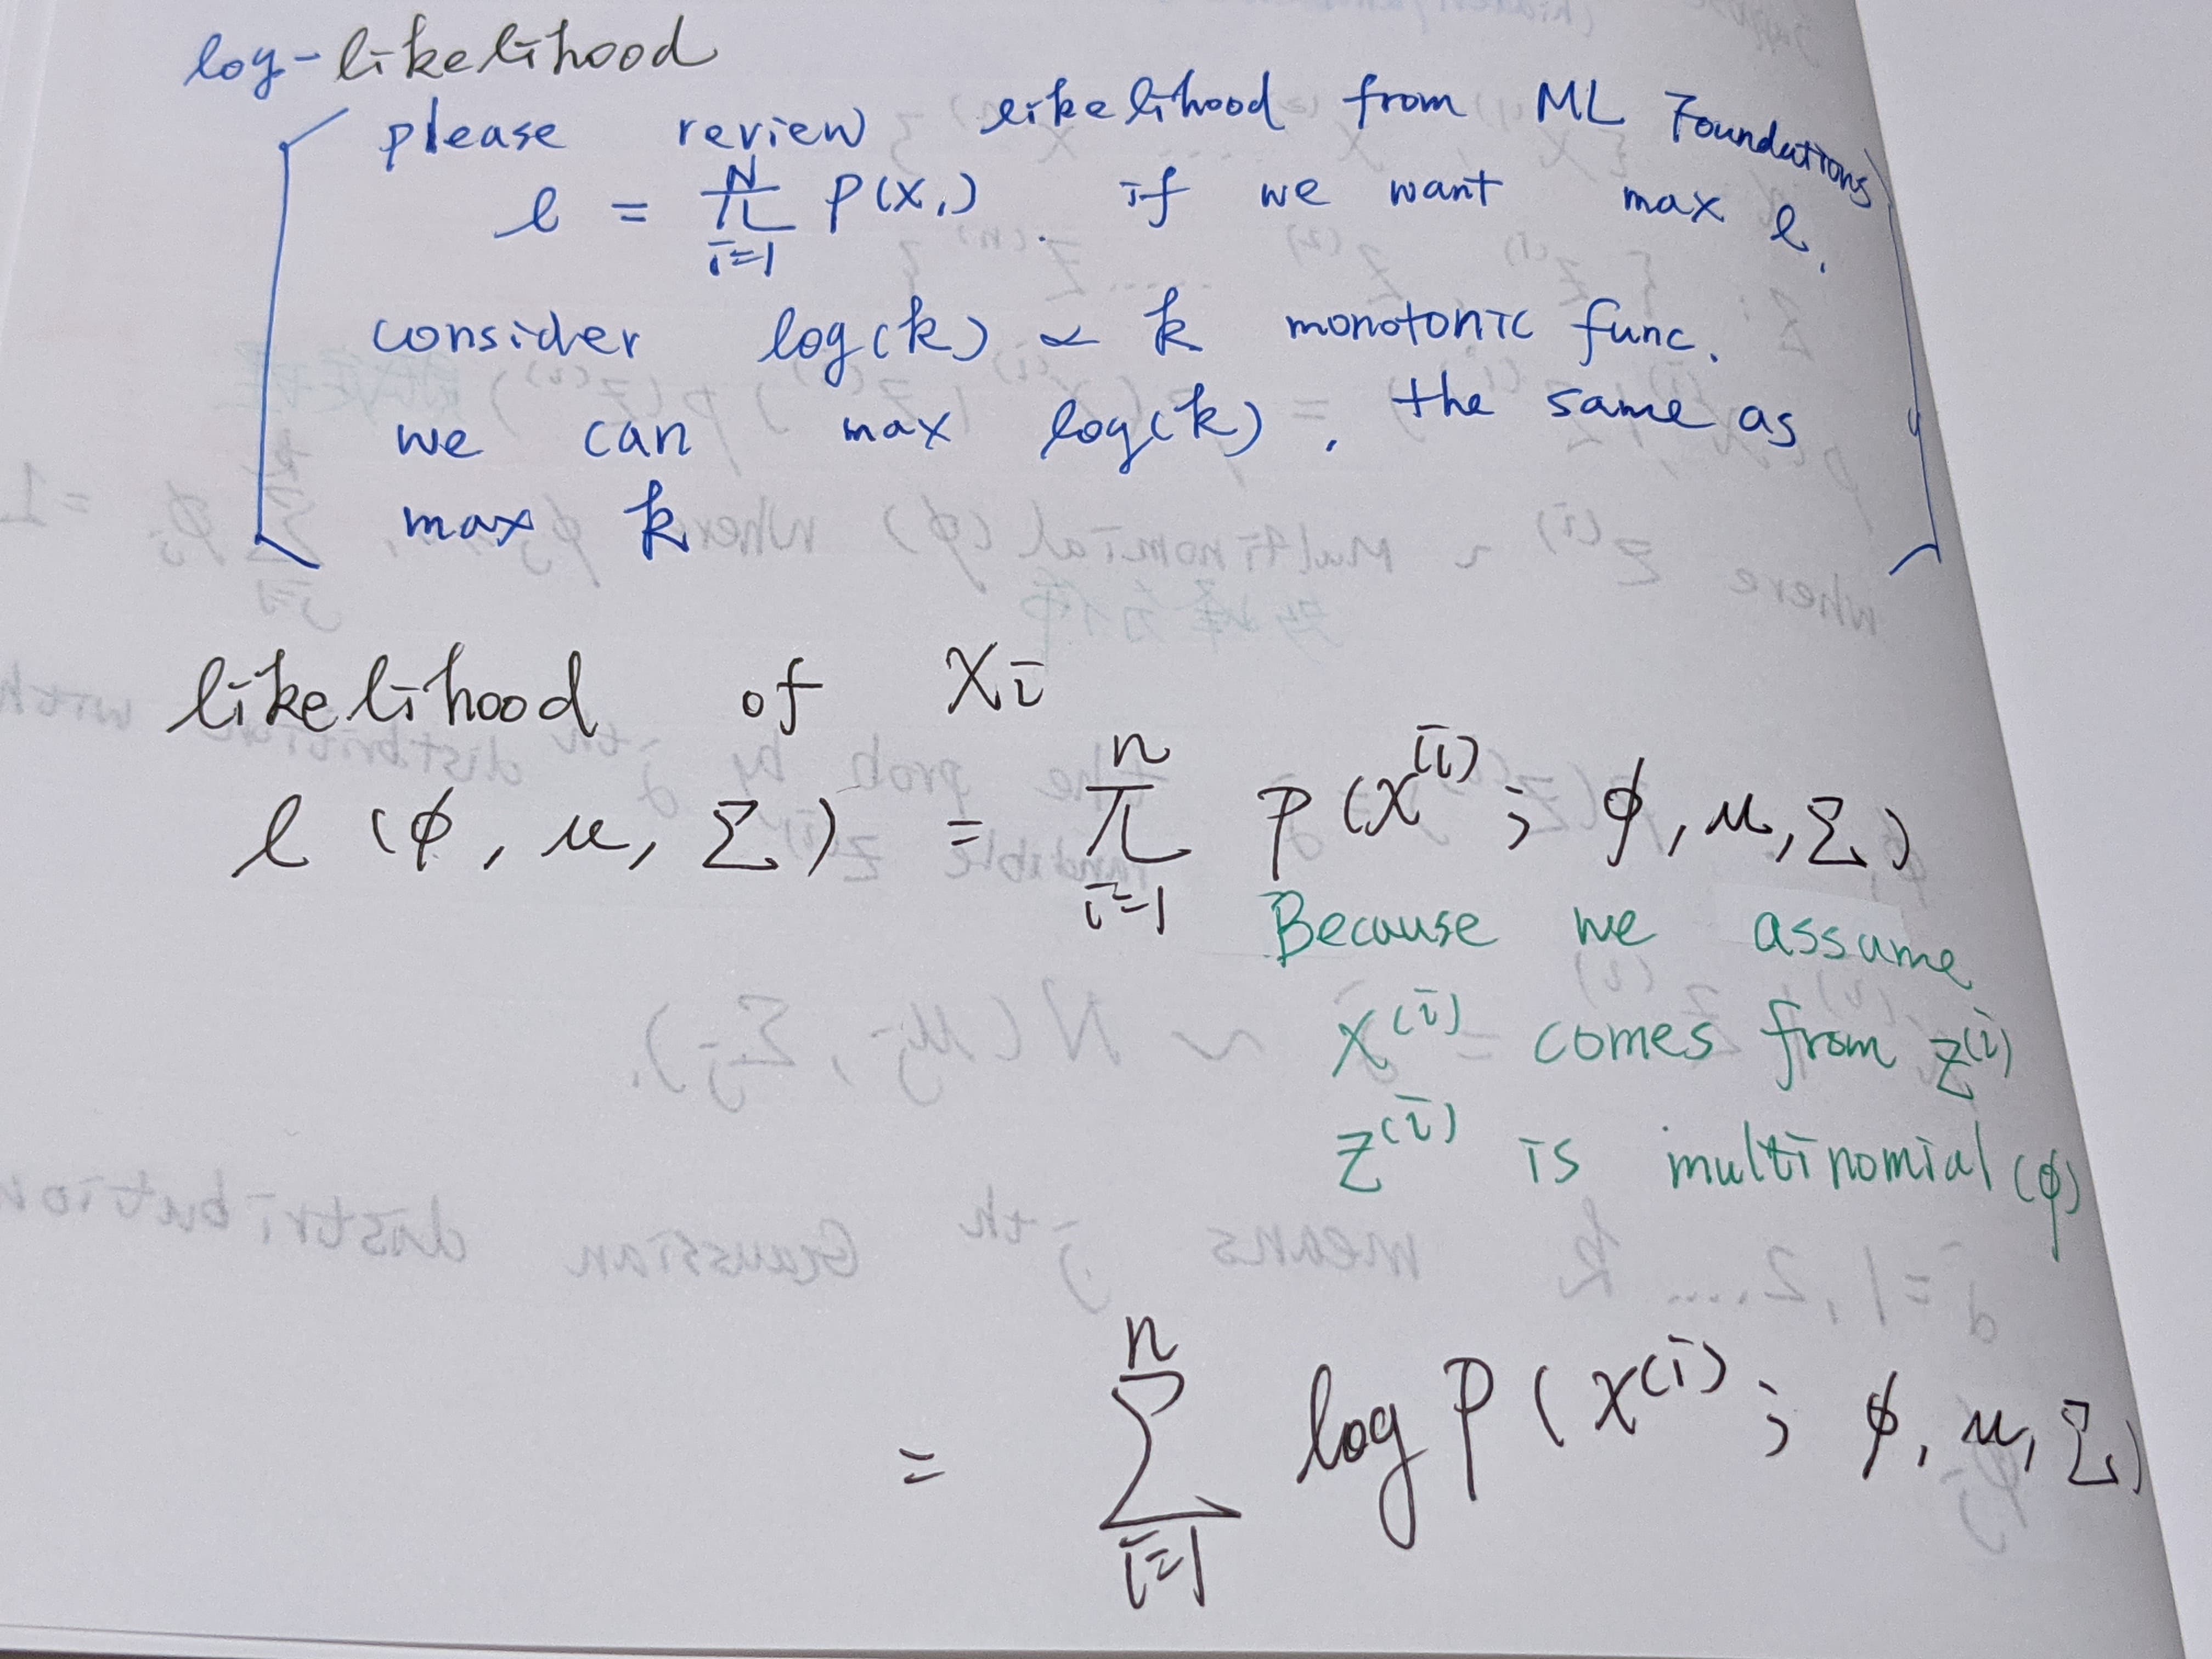 log-likelihood
please review likelihood from ML Foundations
ℓ = ∏_{i=1}^{N} P(x,). if we want max ℓ.
consider log(k) ∝ k monotonic func.
we can max log(k), the same as
max k
likelihood of xi
ℓ(ϕ, μ, Σ) = ∏_{i=1}^{n} P(x^{(i)}; ϕ, μ, Σ)
Because we assume
x^{(i)} comes from z^{(i)}
z^{(i)} is multinomial(ϕ)
= ∑_{i=1}^{n} log P(x^{(i)}; ϕ, μ, Σ)